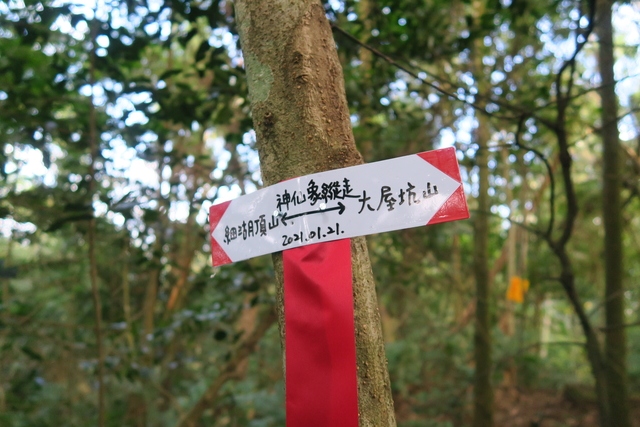 神仙象縱走
細湖頂山 ⟷ 大屋坑山
2021.01.21.